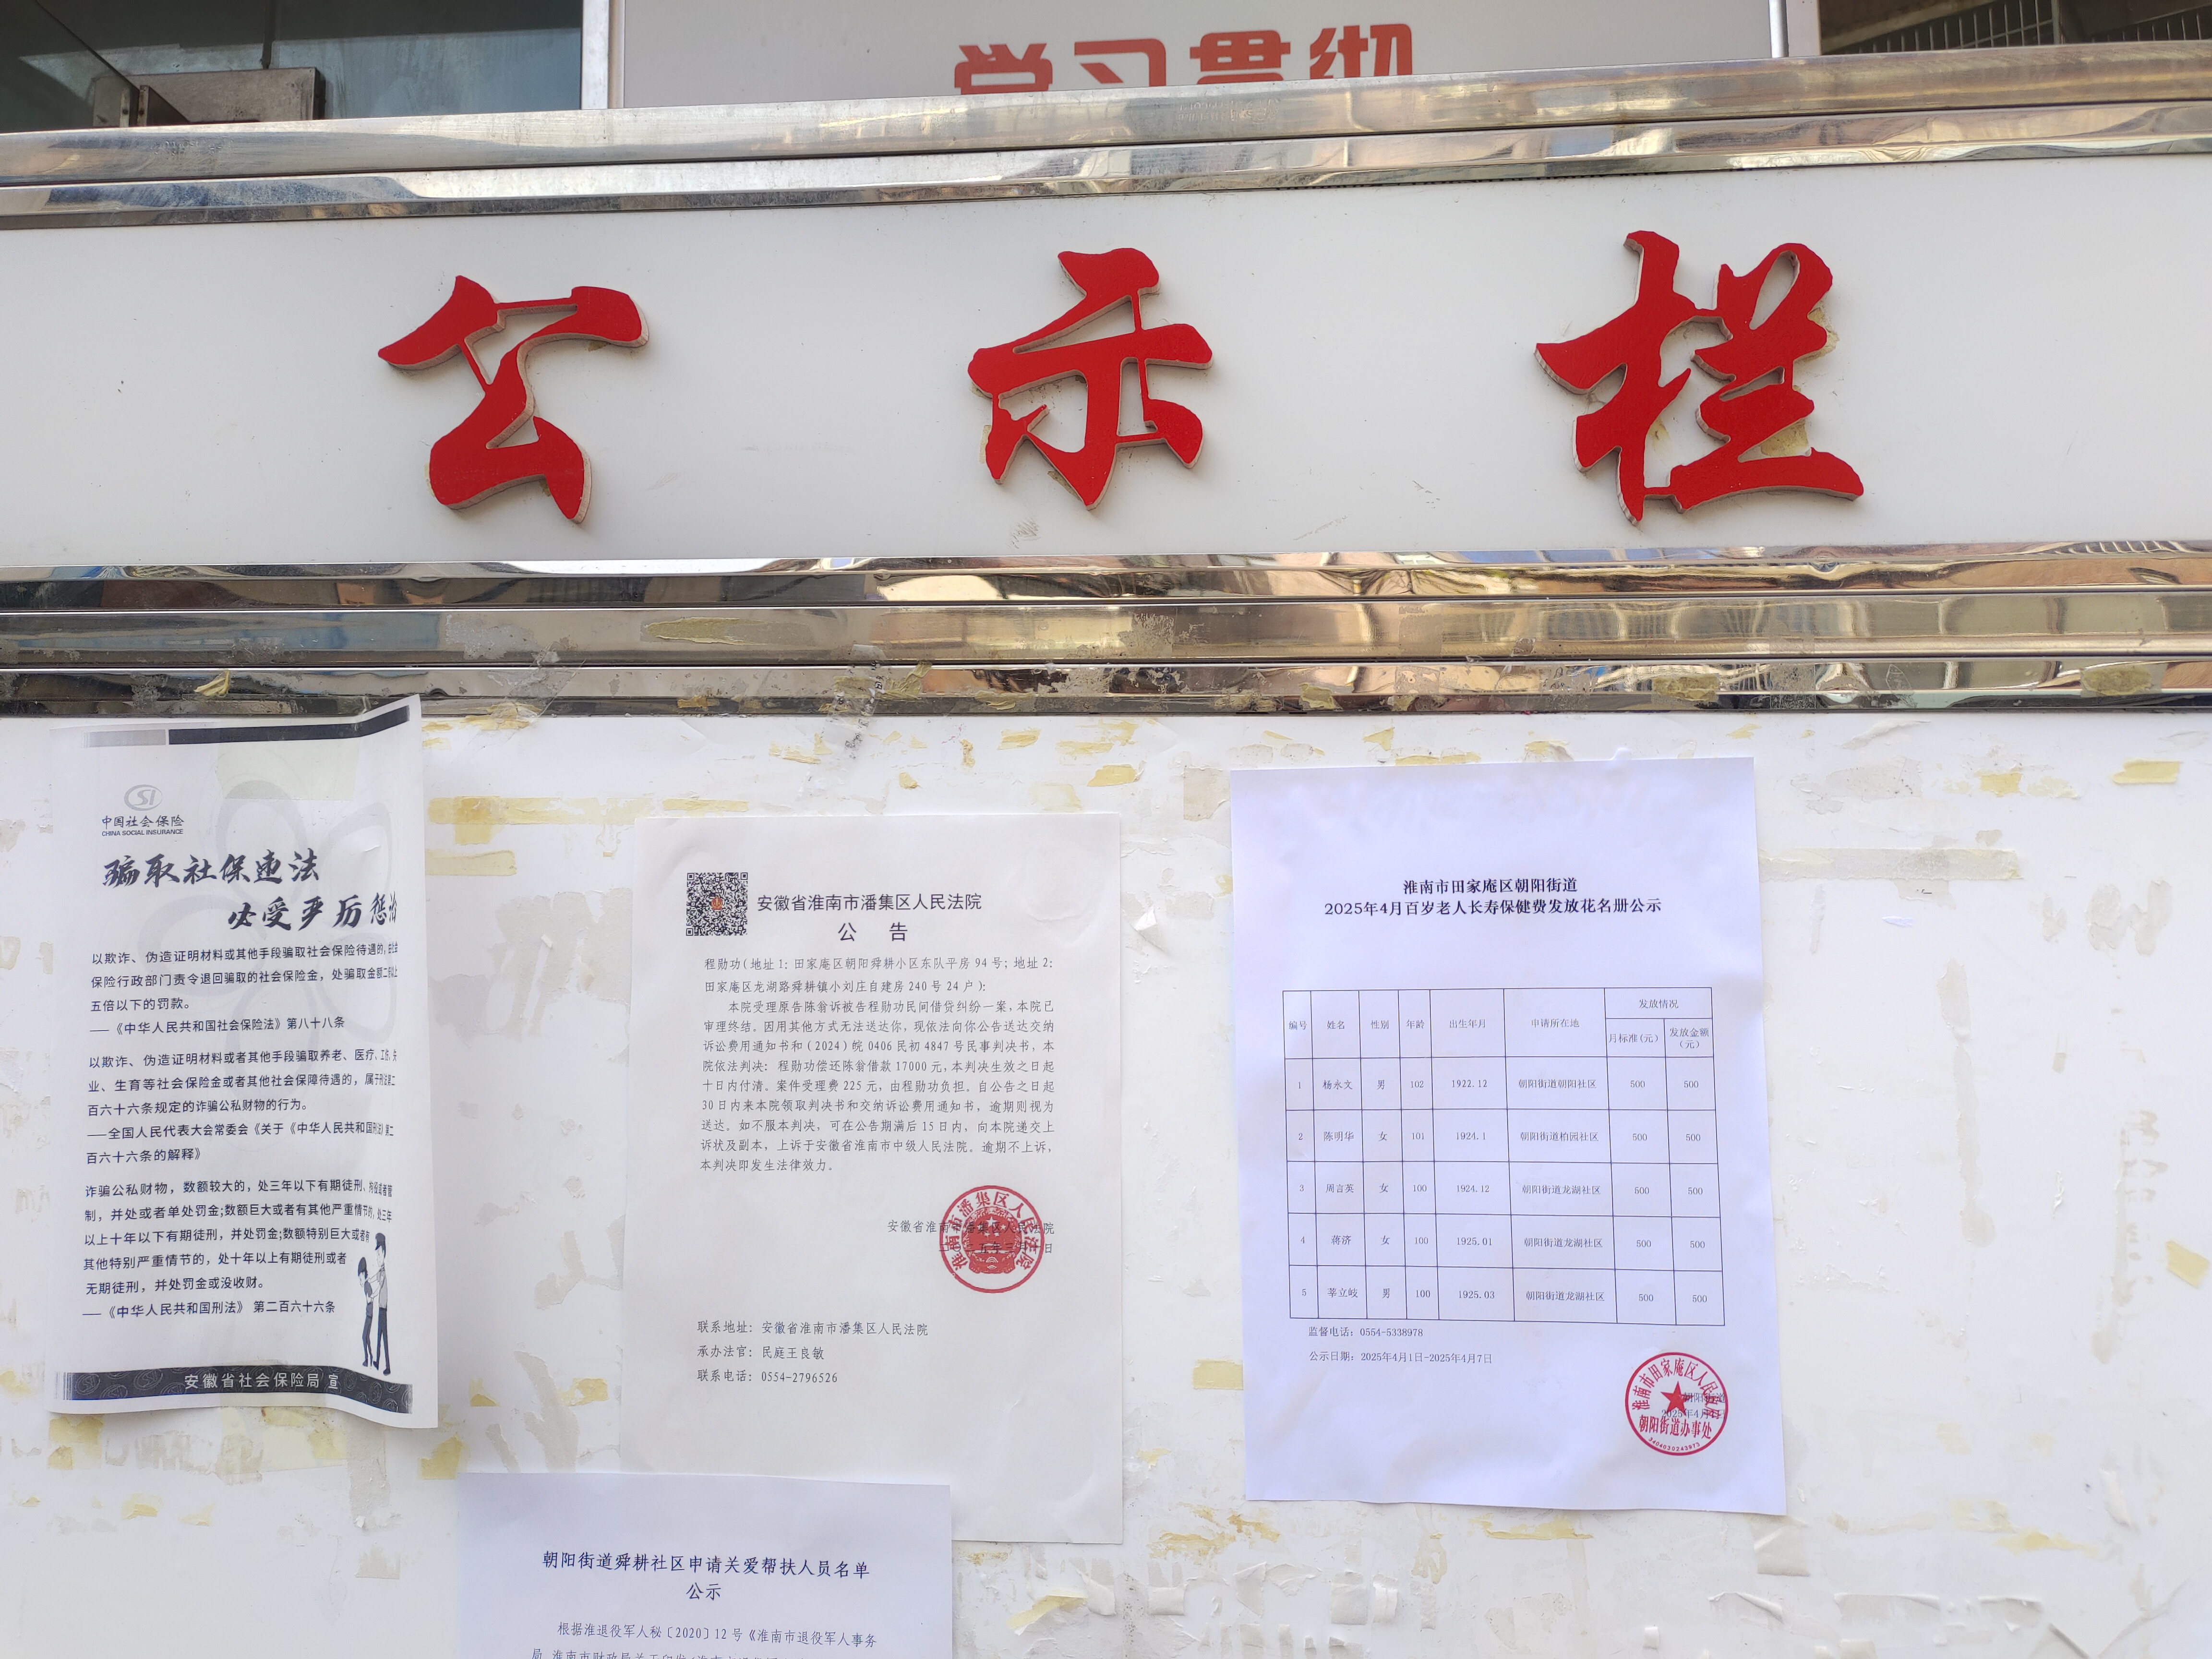 学习贯彻
公示栏
中国社会保险
CHINA SOCIAL INSURANCE
骗取社保违法
必受严厉惩治
以欺诈、伪造证明材料或其他手段骗取社会保险待遇的，由社会
保险行政部门责令退回骗取的社会保险金，处骗取金额二倍以上
五倍以下的罚款。
——《中华人民共和国社会保险法》第八十八条
以欺诈、伪造证明材料或者其他手段骗取养老、医疗、工伤、失
业、生育等社会保险金或者其他社会保障待遇的，属于刑法第二
百六十六条规定的诈骗公私财物的行为。
——全国人民代表大会常委会《关于《中华人民共和国刑法》第二
百六十六条的解释》
诈骗公私财物，数额较大的，处三年以下有期徒刑、拘役或者管
制，并处或者单处罚金;数额巨大或者有其他严重情节的，处三年
以上十年以下有期徒刑，并处罚金;数额特别巨大或者有
其他特别严重情节的，处十年以上有期徒刑或者
无期徒刑，并处罚金或没收财。
——《中华人民共和国刑法》 第二百六十六条
安徽省社会保险局 宣
安徽省淮南市潘集区人民法院
公 告
程勋功(地址1：田家庵区朝阳舜耕小区东队平房94号；地址2：
田家庵区龙湖路舜耕镇小刘庄自建房240号24户)：
本院受理原告陈翁诉被告程勋功民间借贷纠纷一案，本院已
审理终结。因用其他方式无法送达你，现依法向你公告送达交纳
诉讼费用通知书和(2024)皖0406民初4847号民事判决书，本
院依法判决：程勋功偿还陈翁借款17000元，本判决生效之日起
十日内付清。案件受理费225元，由程勋功负担。自公告之日起
30日内来本院领取判决书和交纳诉讼费用通知书，逾期则视为
送达。如不服本判决，可在公告期满后15日内，向本院递交上
诉状及副本，上诉于安徽省淮南市中级人民法院。逾期不上诉，
本判决即发生法律效力。
安徽省淮南市潘集区人民法院
淮南市潘集区人民法院
联系地址：安徽省淮南市潘集区人民法院
承办法官：民庭王良敏
联系电话：0554-2796526
淮南市田家庵区朝阳街道
2025年4月百岁老人长寿保健费发放花名册公示
编号 姓名 性别 年龄 出生年月 申请所在地 发放情况
月标准(元) 发放金额(元)
1 杨永文 男 102 1922.12 朝阳街道朝阳社区 500 500
2 陈明华 女 101 1924.1 朝阳街道柏园社区 500 500
3 周言英 女 100 1924.12 朝阳街道龙湖社区 500 500
4 蒋济 女 100 1925.01 朝阳街道龙湖社区 500 500
5 莘立岐 男 100 1925.03 朝阳街道龙湖社区 500 500
监督电话：0554-5338978
公示日期：2025年4月1日-2025年4月7日
淮南市田家庵区人民政府
朝阳街道办事处
3404030243973
朝阳街道舜耕社区申请关爱帮扶人员名单
公示
根据淮退役军人秘〔2020〕12号《淮南市退役军人事务